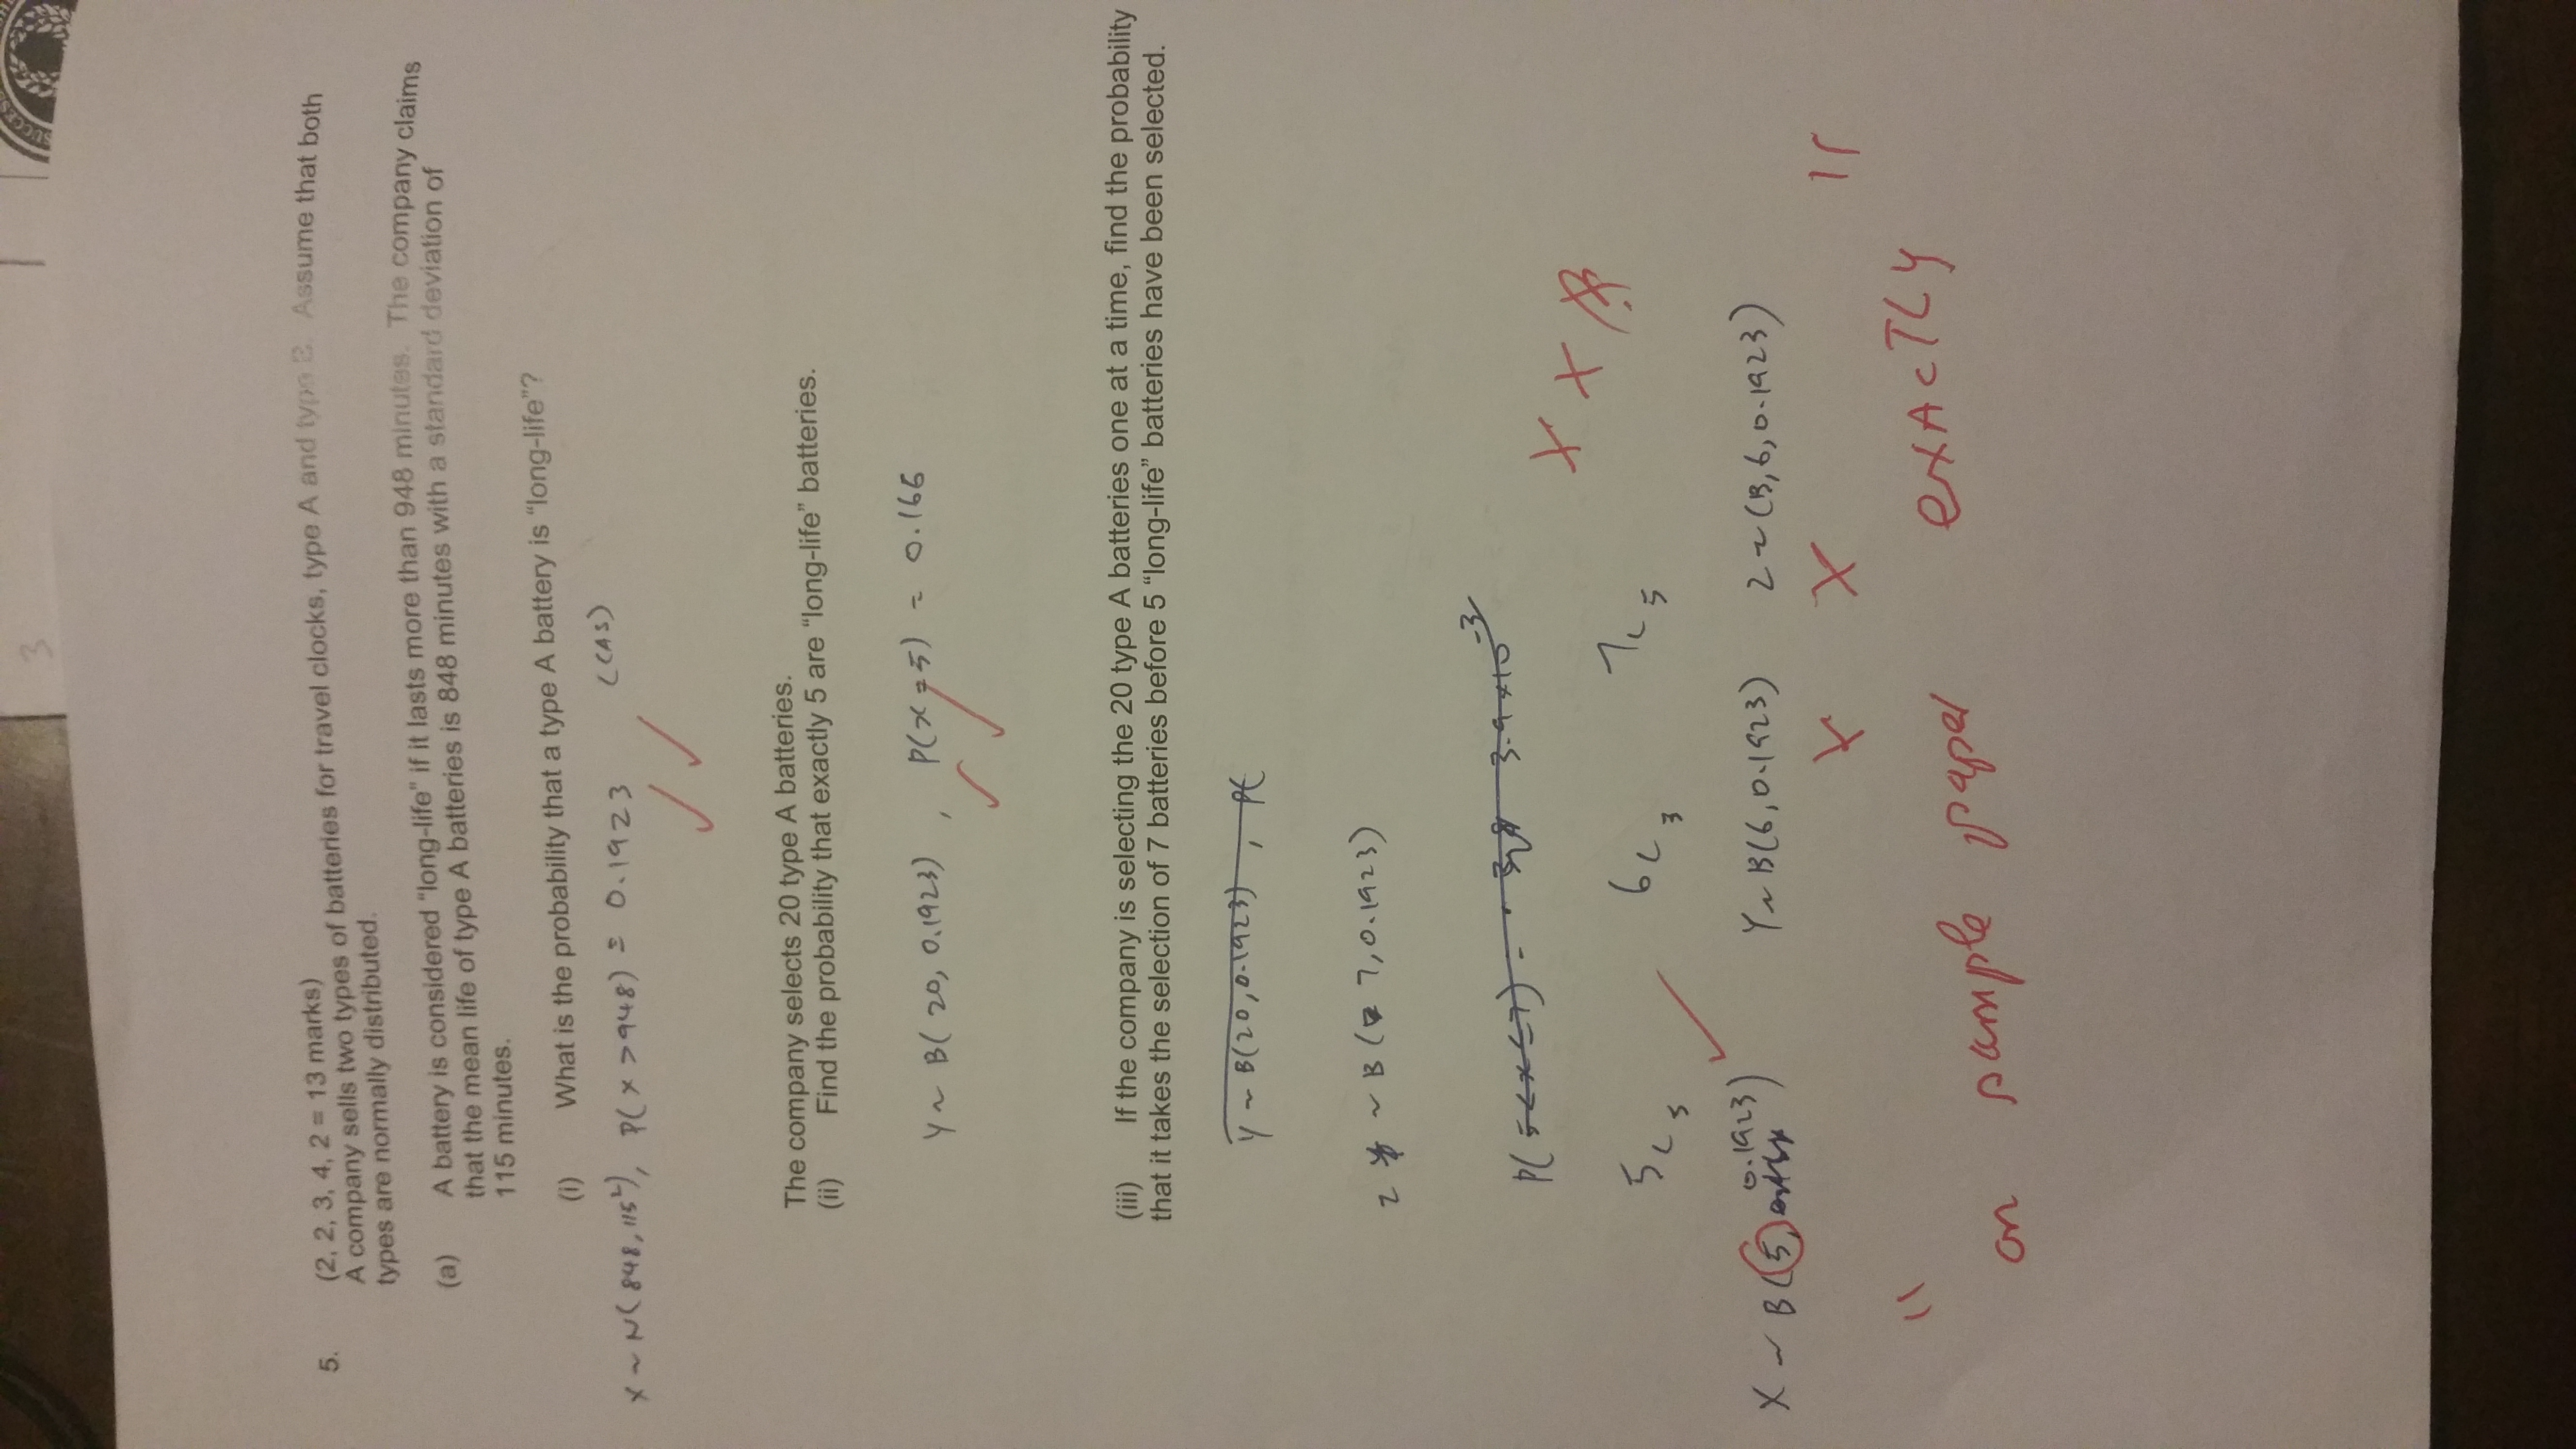 3
5. (2, 2, 3, 4, 2 = 13 marks)
A company sells two types of batteries for travel clocks, type A and type B. Assume that both
types are normally distributed.
(a) A battery is considered "long-life" if it lasts more than 948 minutes. The company claims
that the mean life of type A batteries is 848 minutes with a standard deviation of
115 minutes.
(i) What is the probability that a type A battery is "long-life"?
X ~ N(848, 115²), P(X > 948) = 0.1923 (CAS)
The company selects 20 type A batteries.
(ii) Find the probability that exactly 5 are "long-life" batteries.
Y ~ B(20, 0.1923), P(X = 5) = 0.166
(iii) If the company is selecting the 20 type A batteries one at a time, find the probability
that it takes the selection of 7 batteries before 5 "long-life" batteries have been selected.
Y ~ B(20, 0.1923), P(
~ B( 7, 0.1923)
P(5 < X ≤ 7) 3.9 × 10⁻³
X X
5C5 6C3 7C5
X ~ B(5, 0.1923) Y ~ B(6, 0.1923) 2 ~ (B, 6, 0.1923)
X X
" exACTLY
on sample paper